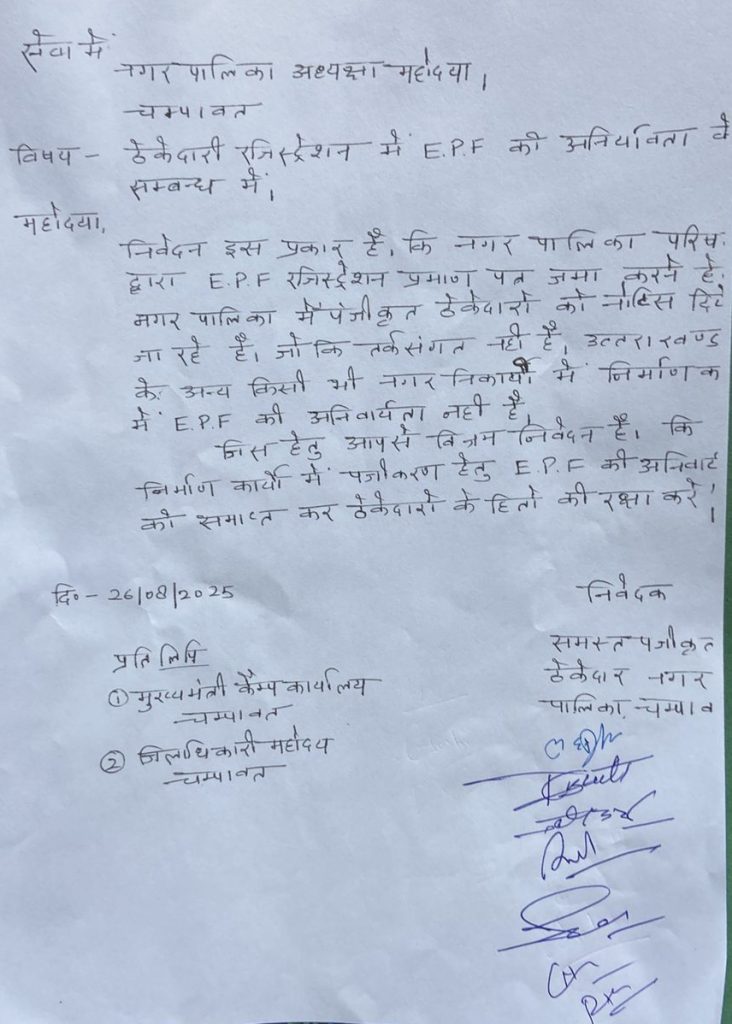 सेवा में
नगर पालिका अध्यक्षा महोदया।
चम्पावत
विषय - ठेकेदारी रजिस्ट्रेशन में E.P.F की अनिर्यावता के
सम्बन्ध में।
महोदया,
निवेदन इस प्रकार है, कि नगर पालिका परिष
द्वारा E.P.F रजिस्ट्रेशन प्रमाण पत्र जमा करने हे
नगर पालिका में पंजीकृत ठेकेदारो को नोटिस दिये
जा रहे है। जो कि तर्कसंगत नही है, उत्तराखण्ड
के अन्य किसी भी नगर निकायों में निर्माण क
में E.P.F की अनिवार्यता नही है,
जिस हेतु आपसे विनम्र निवेदन है। कि
निर्माण कार्यो में पजीकरण हेतु E.P.F की अनिवार्य
को समाप्त कर ठेकेदारो के हितो की रक्षा करे।
दि० - 26/08/2025
निवेदक
समस्त पजीकृत
ठेकेदार नगर
पालिका, चम्पाव
प्रतिलिपि
① मुख्यमंत्री कैम्प कार्यालय
चम्पावत
② जिलाधिकारी महोदय
चम्पावत